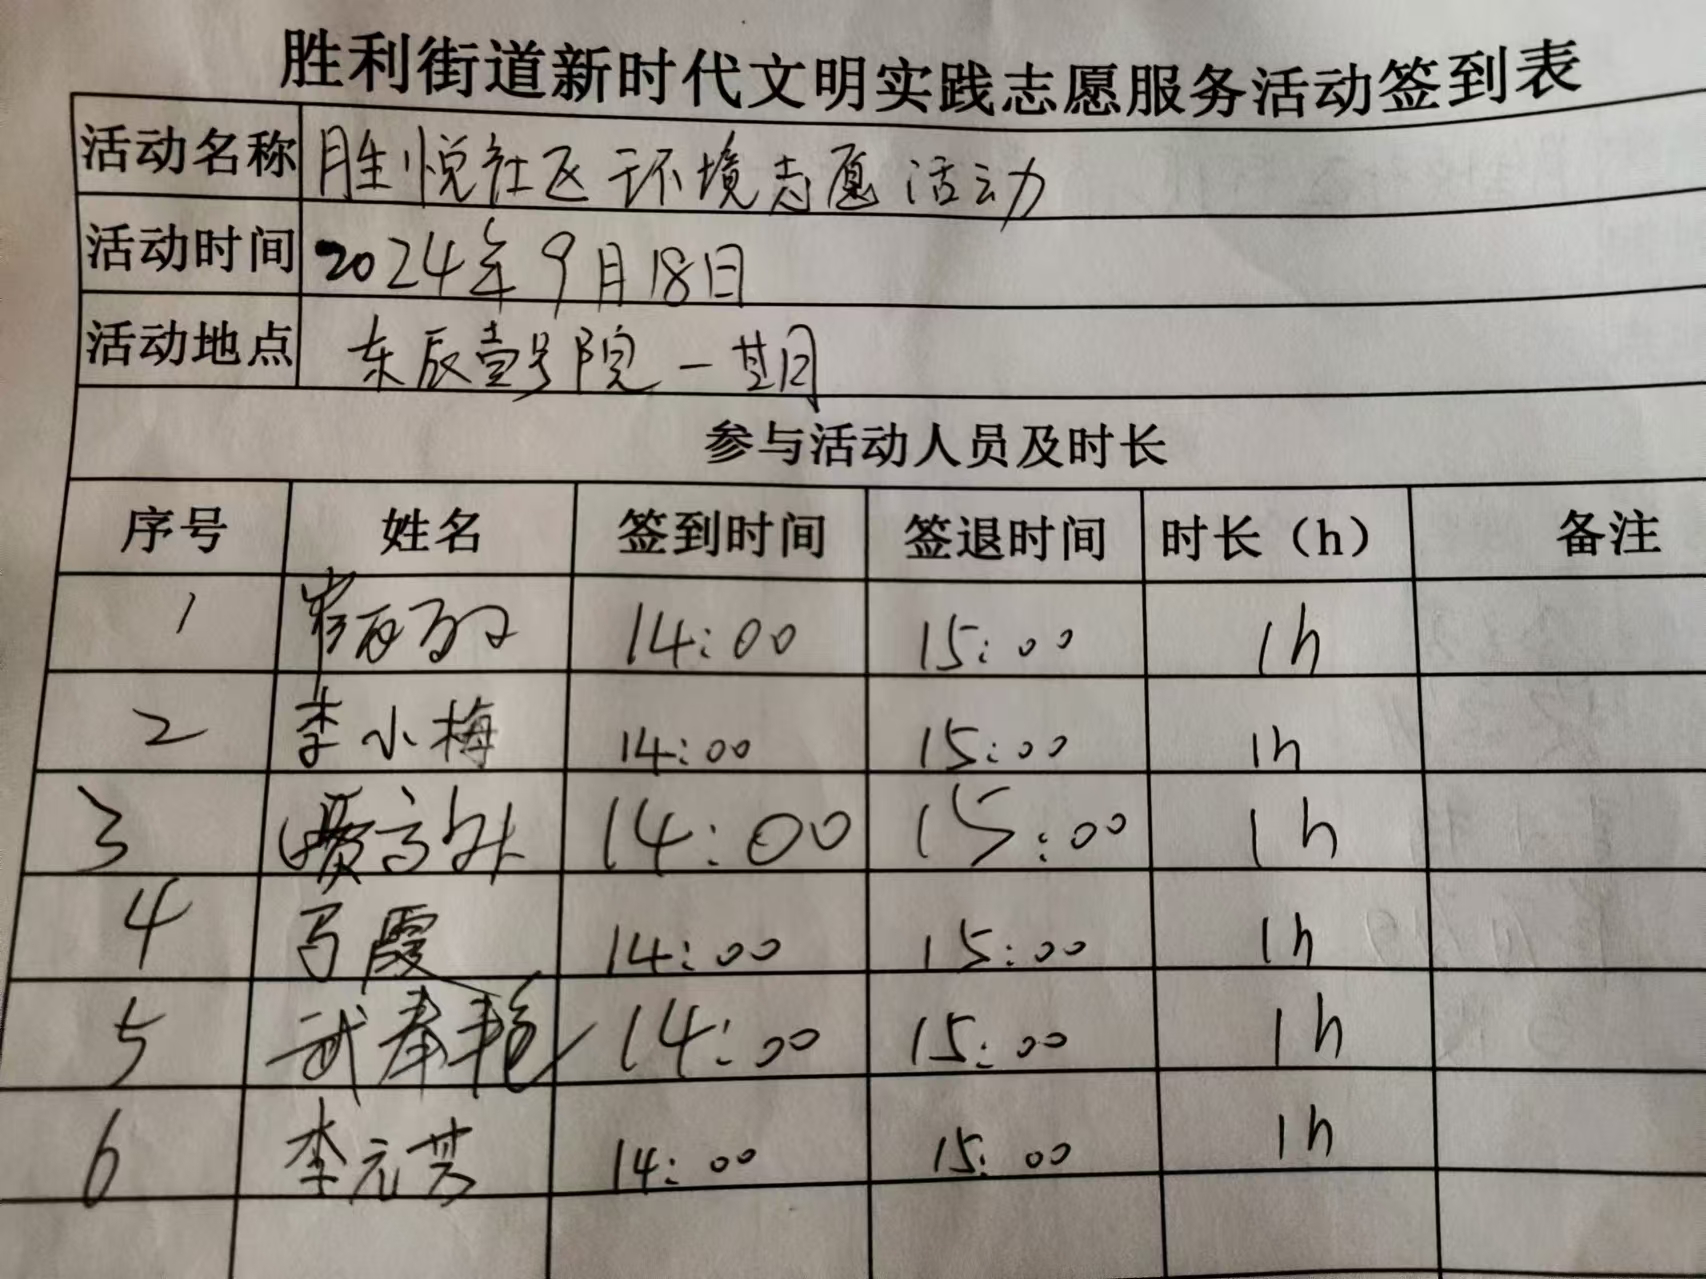 胜利街道新时代文明实践志愿服务活动签到表
活动名称 胜悦社区环境志愿活动
活动时间 2024年9月18日
活动地点 东辰壹号院一期
参与活动人员及时长
序号 姓名 签到时间 签退时间 时长（h） 备注
1 14:00 15:00 1h
2 李小梅 14:00 15:00 1h
3 14:00 15:00 1h
4 马霞 14:00 15:00 1h
5 武春艳 14:00 15:00 1h
6 李元芳 14:00 15:00 1h